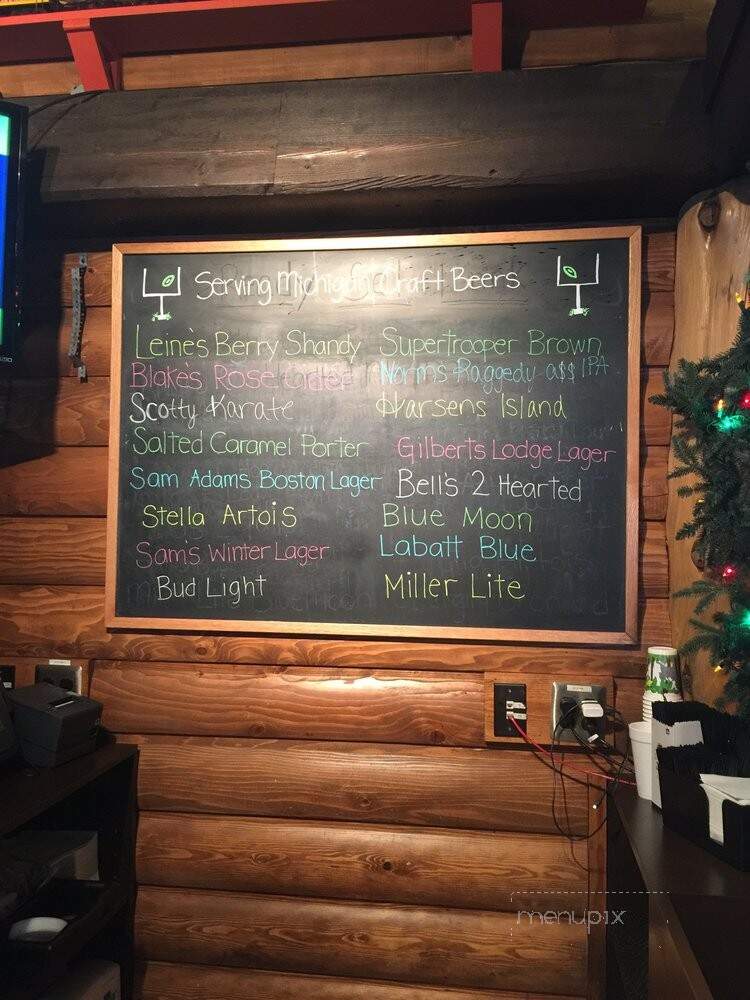 Serving Michigan Craft Beers
Leine's Berry Shandy
Blake's Rose
Scotty Karate
Salted Caramel Porter
Sam Adams Boston Lager
Stella Artois
Sam's Winter Lager
Bud Light
Supertrooper Brown
Norms Raggedy a$$ IPA
Harsens Island
Gilberts Lodge Lager
Bell's 2 Hearted
Blue Moon
Labatt Blue
Miller Lite
menupix